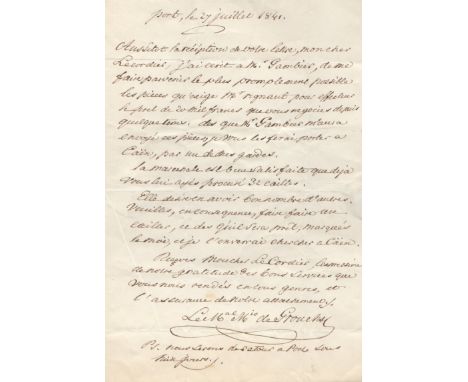 port, le 27 juillet 1841.
Aussitôt la réception de votre lettre, mon cher
Lecordier, j'ai écrit à Mr. Gambier, de me
faire parvenir le plus promptement possible
les pièces qu'exige Mr. pour effectuer
le prêt de francs que vous négociez depuis
quelque tems. dès que Mr. Gambier m'aura
envoyé ces pièces, je vous les ferai porter à
Caën, par un de mes gardes.
La maréchale est très satisfaite que déjà
vous lui ayés procuré 32 cailles.
Elle désire en avoir bon nombre d'autres.
Veuillés, en conséquence, faire faire
caillier, et dès qu'il sera prêt, marqués
le moi, et je l'enverrai chercher à Caën.
Recevés Mon cher Le Cordier, l'assurance
de notre gratitude des bons services que
vous nous rendés en tous genres, et
l'assurance de notre attachement,
Le Mal. Mis. de Grouchy
Ps. nous serons de retour à sous
huit jours.